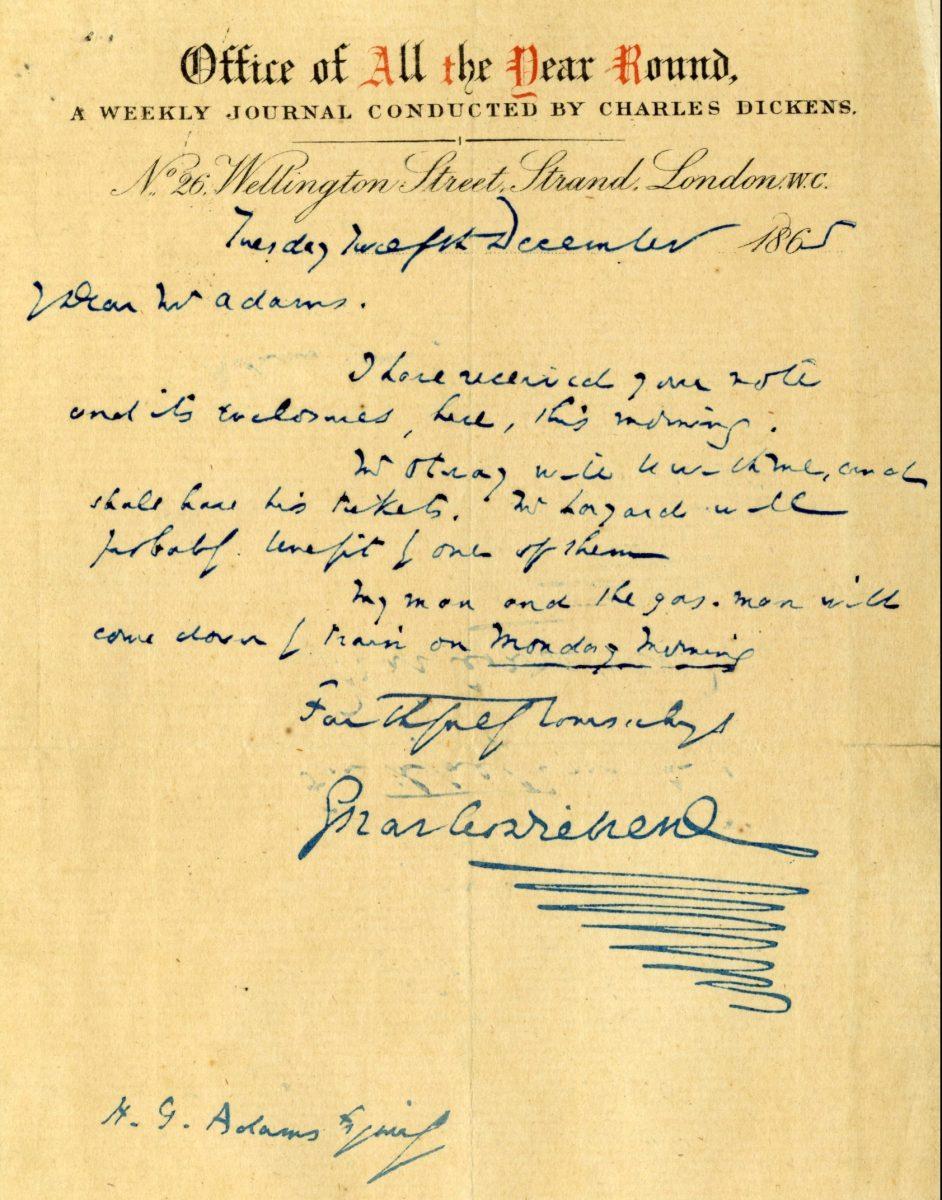 Office of All the Year Round,
A WEEKLY JOURNAL CONDUCTED BY CHARLES DICKENS.
No. 26, Wellington Street, Strand, London. W.C.
Tuesday Twelfth December 1865
Dear Mr Adams.
I have received your note
and its enclosures, here, this morning.
Mr will be with me, and
shall have his tickets. Mr Layard will
probably benefit by one of them
My man and the gas-man will
come down by train on Monday Morning
Faithfully Yours always
Charles Dickens
H. G. Adams Esquire